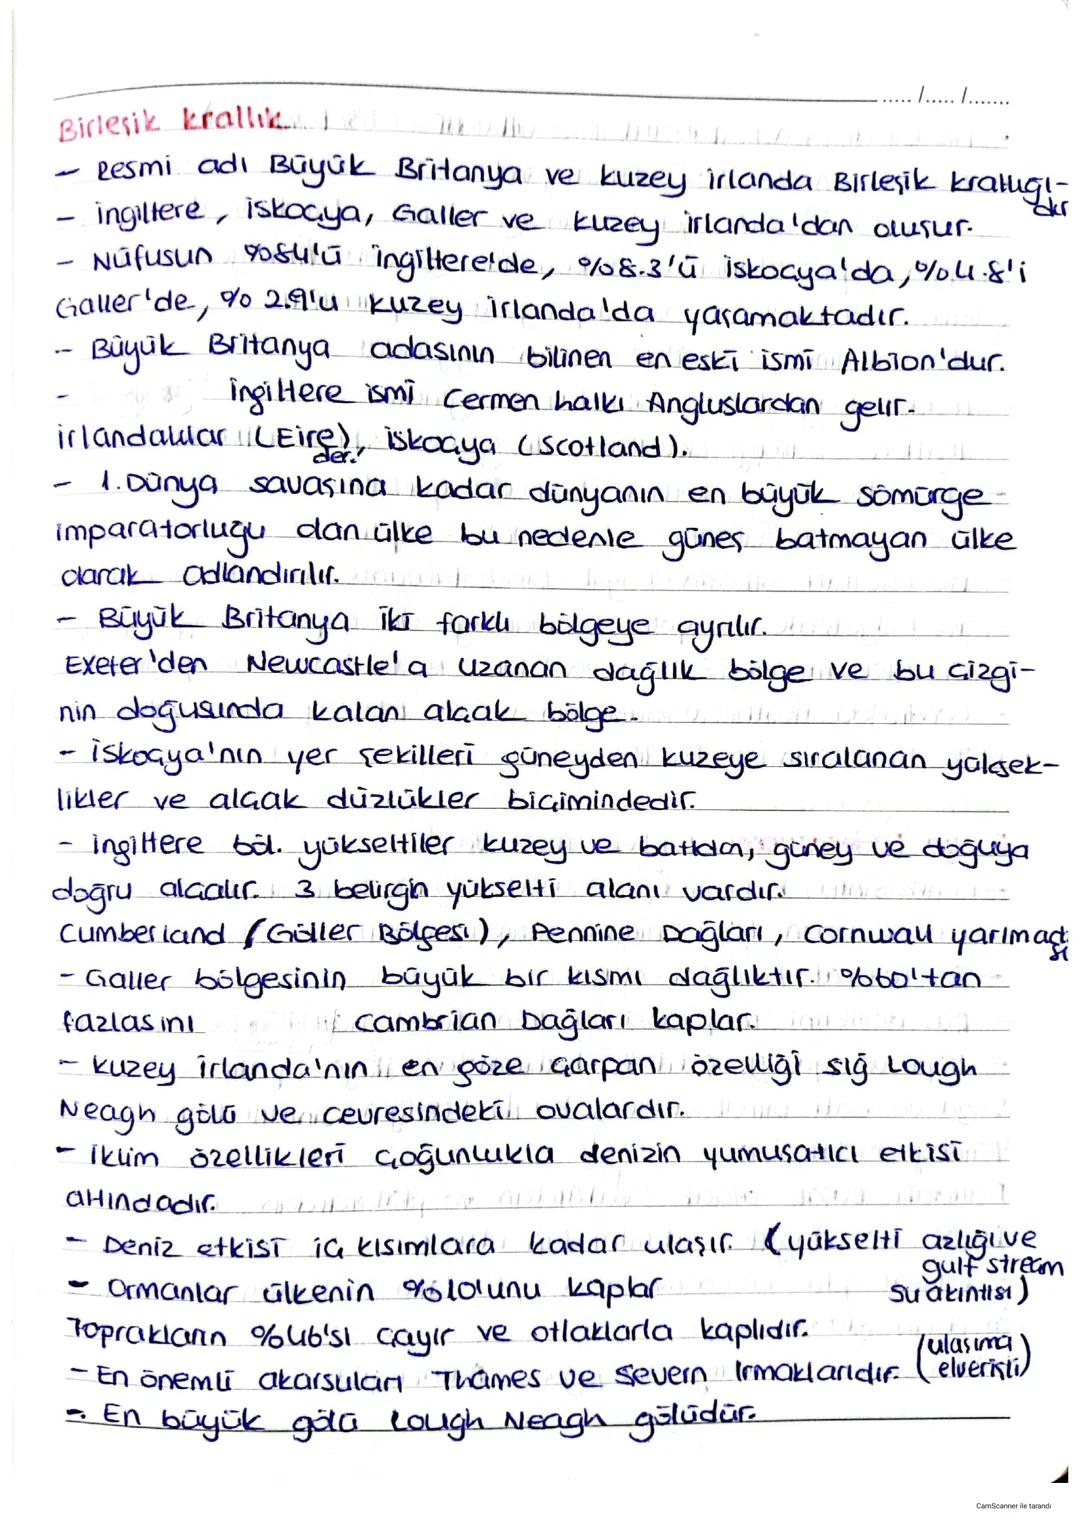 ...../...../.......
Birleşik krallık
- Resmi adı Büyük Britanya ve kuzey irlanda Birleşik krallığı-
dır
- ingiltere, iskoçya, Galler ve kuzey irlanda'dan oluşur.
- Nüfusun %84'ü ingiltere'de, %8.3'ü iskoçya'da, %4.8'i
Galler'de, %2.9'u kuzey irlanda'da yaşamaktadır.
- Büyük Britanya adasının bilinen en eski ismi Albion'dur.
- ingiltere ismi Cermen halkı Angluslardan gelir.
irlandalılar (Eire) der, iskoçya (Scotland).
- 1. Dünya savaşına kadar dünyanın en büyük sömürge
imparatorluğu dan ülke bu nedenle güneş batmayan ülke
olarak adlandırılır.
- Büyük Britanya iki farklı bölgeye ayrılır.
Exeter'den Newcastle'a uzanan dağlık bölge ve bu çizgi-
nin doğusunda kalan alçak bölge.
- iskoçya'nın yer şekilleri güneyden kuzeye sıralanan yüksek-
likler ve alçak düzlükler biçimindedir.
- ingiltere böl. yükseltiler kuzey ve batıdan, güney ve doğuya
doğru alçalır. 3 belirgin yükselti alanı vardır.
Cumberland (Göller Bölgesi), Pennine Dağları, Cornwall yarımada
sı
- Galler bölgesinin büyük bir kısmı dağlıktır. %60'tan
fazlasını Cambrian Dağları kaplar.
- kuzey irlanda'nın en göze çarpan özelliği sığ Lough
Neagh gölü ve çevresindeki ovalardır.
- iklim özellikleri çoğunlukla denizin yumuşatıcı etkisi
altındadır.
- Deniz etkisi iç kısımlara kadar ulaşır. (yükselti azlığı ve
gulf stream
su akıntısı)
- Ormanlar ülkenin %10'unu kaplar
Toprakların %46'sı çayır ve otlaklarla kaplıdır.
- En önemli akarsuları Thames ve Severn Irmaklarıdır. (ulaşıma
elverişli)
- En büyük gölü Lough Neagh gölüdür.
CamScanner ile tarandı